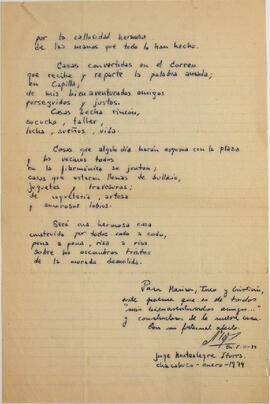 por la callosidad hermosa
de las manos que todo lo han hecho.
Casas convertidas en el Correo
que recibe y reparte la palabra amada;
en Capilla,
de mis bienaventurados amigos
perseguidos y justos.
Casas hecha rincón,
, taller,
lucha, sueños, vida.
Casas que algún día harán esquina con la plaza
y los vecinos todos
en la filarmónica se juntan;
casas que estarán llenas de bullicio,
juguetes y travesuras;
de , artesa
y amorosos labios.
Será una hermosa casa
construida por todos codo a codo,
pena a pena, risa a risa
sobre los escombros tristes
de la morada demolida.
Para , y Cristián,
este poema que es de todos
"mis bienaventurados amigos..."
y constructores de la nueva casa.
Con mi fraternal afecto.
Jorge Montealegre Iturra.
Chacabuco - enero - 1974